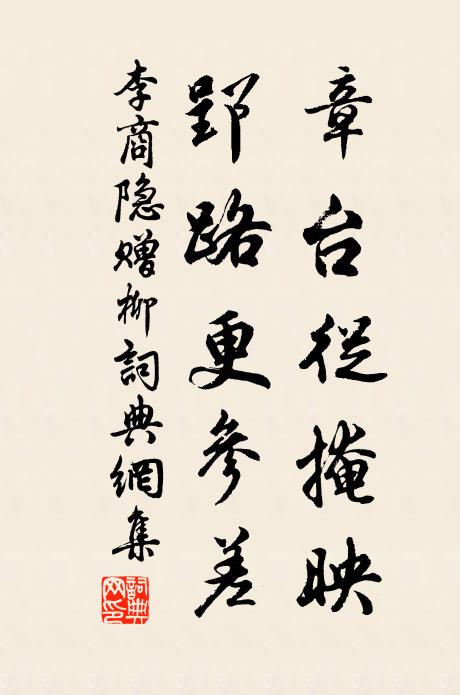 章台從掩映
郢路更參差
李商隐贈柳詞典網集
詞典網印